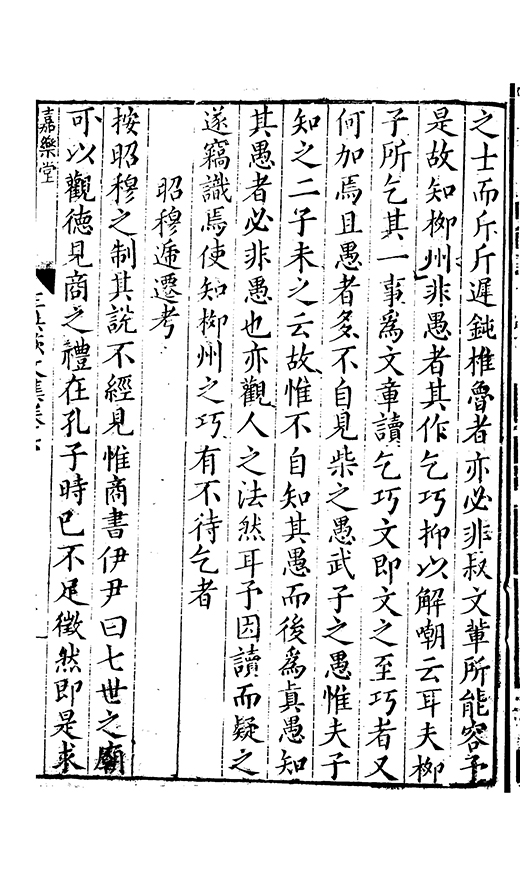 之士而斤斤遲鈍椎魯者亦必非叔文輩所能容予
是故知柳州非愚者其作乞巧抑以解嘲云耳夫柳
子所乞其一事為文章讀乞巧文即文之至巧者又
何加焉且愚者多不自見柴之愚武子之愚惟夫子
知之二子未之云故惟不自知其愚而後為真愚知
其愚者必非愚也亦觀人之法然耳予因讀而疑之
遂竊識焉使知柳州之巧有不待乞者
昭穆遞遷考
按昭穆之制其說不經見惟商書伊尹曰七世之廟
可以觀德見商之禮在孔子時已不足徵然即是求
嘉樂堂